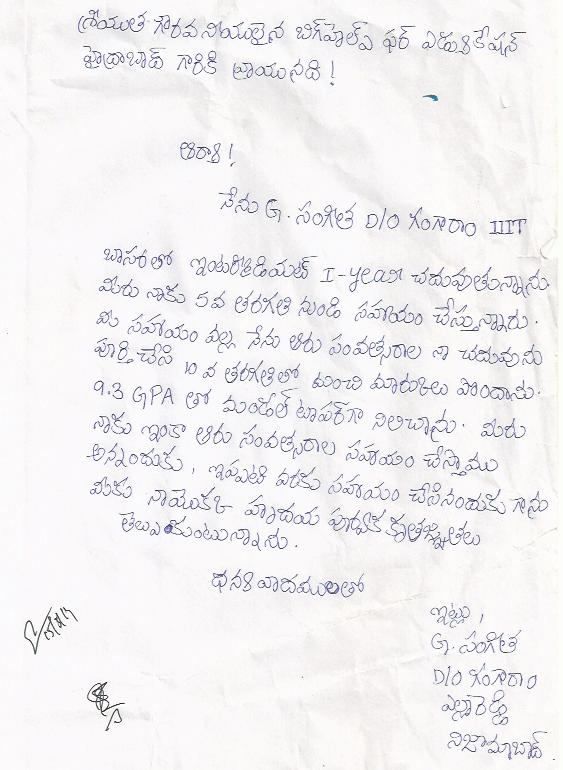 శ్రీయుత గౌరవనీయులైన బిగ్‌హెల్ప్ ఫర్ ఎడ్యుకేషన్
హైద్రాబాద్ గారికి వ్రాయునది!
ఆర్యా!
నేను G. సంగీత D/O గంగారాం IIIT
బాసరలో ఇంటర్మీడియట్ I-year చదువుతున్నాను.
మీరు నాకు 5వ తరగతి నుండి సహాయం చేస్తున్నారు.
మీ సహాయం వల్ల నేను ఆరు సంవత్సరాల నా చదువును
పూర్తి చేసి 10వ తరగతిలో మంచి మార్కులు పొందాను.
9.3 GPA తో మండల్ టాపర్‌గా నిలిచాను. మీరు
నాకు ఇంకా ఆరు సంవత్సరాల సహాయం చేస్తాము
అన్నందుకు, ఇప్పటి వరకు సహాయం చేసినందుకు గాను
మీకు నాయొక్క హృదయ పూర్వక కృతజ్ఞతలు
తెలుపుకుంటున్నాను.
ధన్యవాదములతో
ఇట్లు,
G. సంగీత
D/O గంగారాం
ఎల్లారెడ్డి
నిజామాబాద్